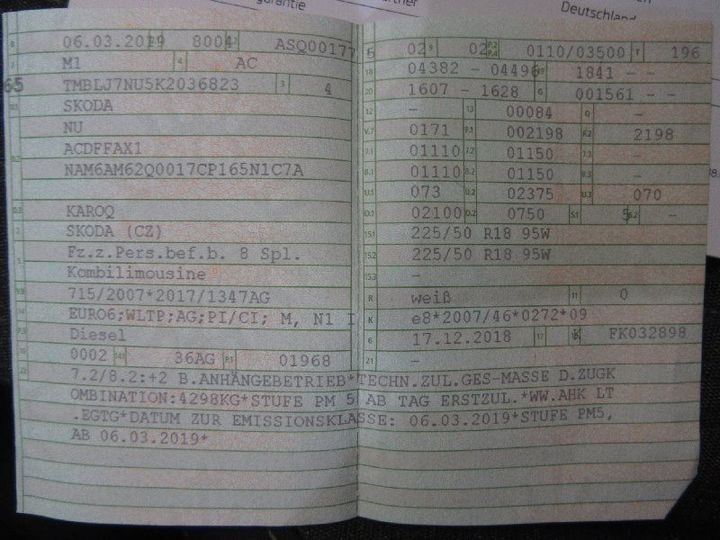 garantie
Deutschland
06.03.2019 8004 ASQ00177
M1 AC
TMBLJ7NU5K2036823 4
SKODA
NU
ACDFFAX1
NAM6AM62Q0017CP165N1C7A
KAROQ
SKODA (CZ)
Fz.z.Pers.bef.b. 8 Spl.
Kombilimousine
715/2007*2017/1347AG
EURO6;WLTP;AG;PI/CI; M, N1 I
Diesel
0002 36AG 01968
02 02 0110/03500 196
04382 - 04496 1841 - -
1607 - 1628 G 001561 - -
- 13 00084 Q -
V.7 0171 F.1 002198 F.2 2198
7.1 01110 7.2 01150 7.3 -
8.1 01110 8.2 01150 8.3 -
U.1 073 U.2 02375 U.3 070
O.1 02100 O.2 0750 S.1 5 S.2 -
15.1 225/50 R18 95W
15.2 225/50 R18 95W
15.3 -
R weiß 11 0
K e8*2007/46*0272*09
6 17.12.2018 17 K FK032898
21 -
22 7.2/8.2:+2 B.ANHÄNGEBETRIEB*TECHN.ZUL.GES-MASSE D.ZUGK
OMBINATION:4298KG*STUFE PM 5 AB TAG ERSTZUL.*WW.AHK LT
.EGTG*DATUM ZUR EMISSIONSKLASSE: 06.03.2019*STUFE PM5,
AB 06.03.2019*